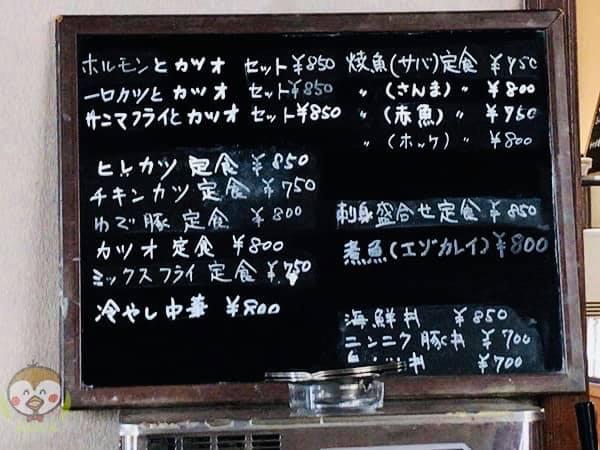 ホルモンとカツオ セット¥850
一口カツとカツオ セット¥850
サンマフライとカツオ セット¥850
ヒレカツ定食 ¥850
チキンカツ定食 ¥750
ゆで豚定食 ¥800
カツオ定食 ¥800
ミックスフライ定食 ¥750
冷やし中華 ¥800
焼魚(サバ)定食 ¥750
〃 (さんま) 〃 ¥800
〃 (赤魚) 〃 ¥750
〃 (ホッケ) 〃 ¥800
刺身盛合せ定食 ¥850
煮魚(エゾカレイ) ¥800
海鮮丼 ¥850
ニンニク豚丼 ¥700
丼 ¥700